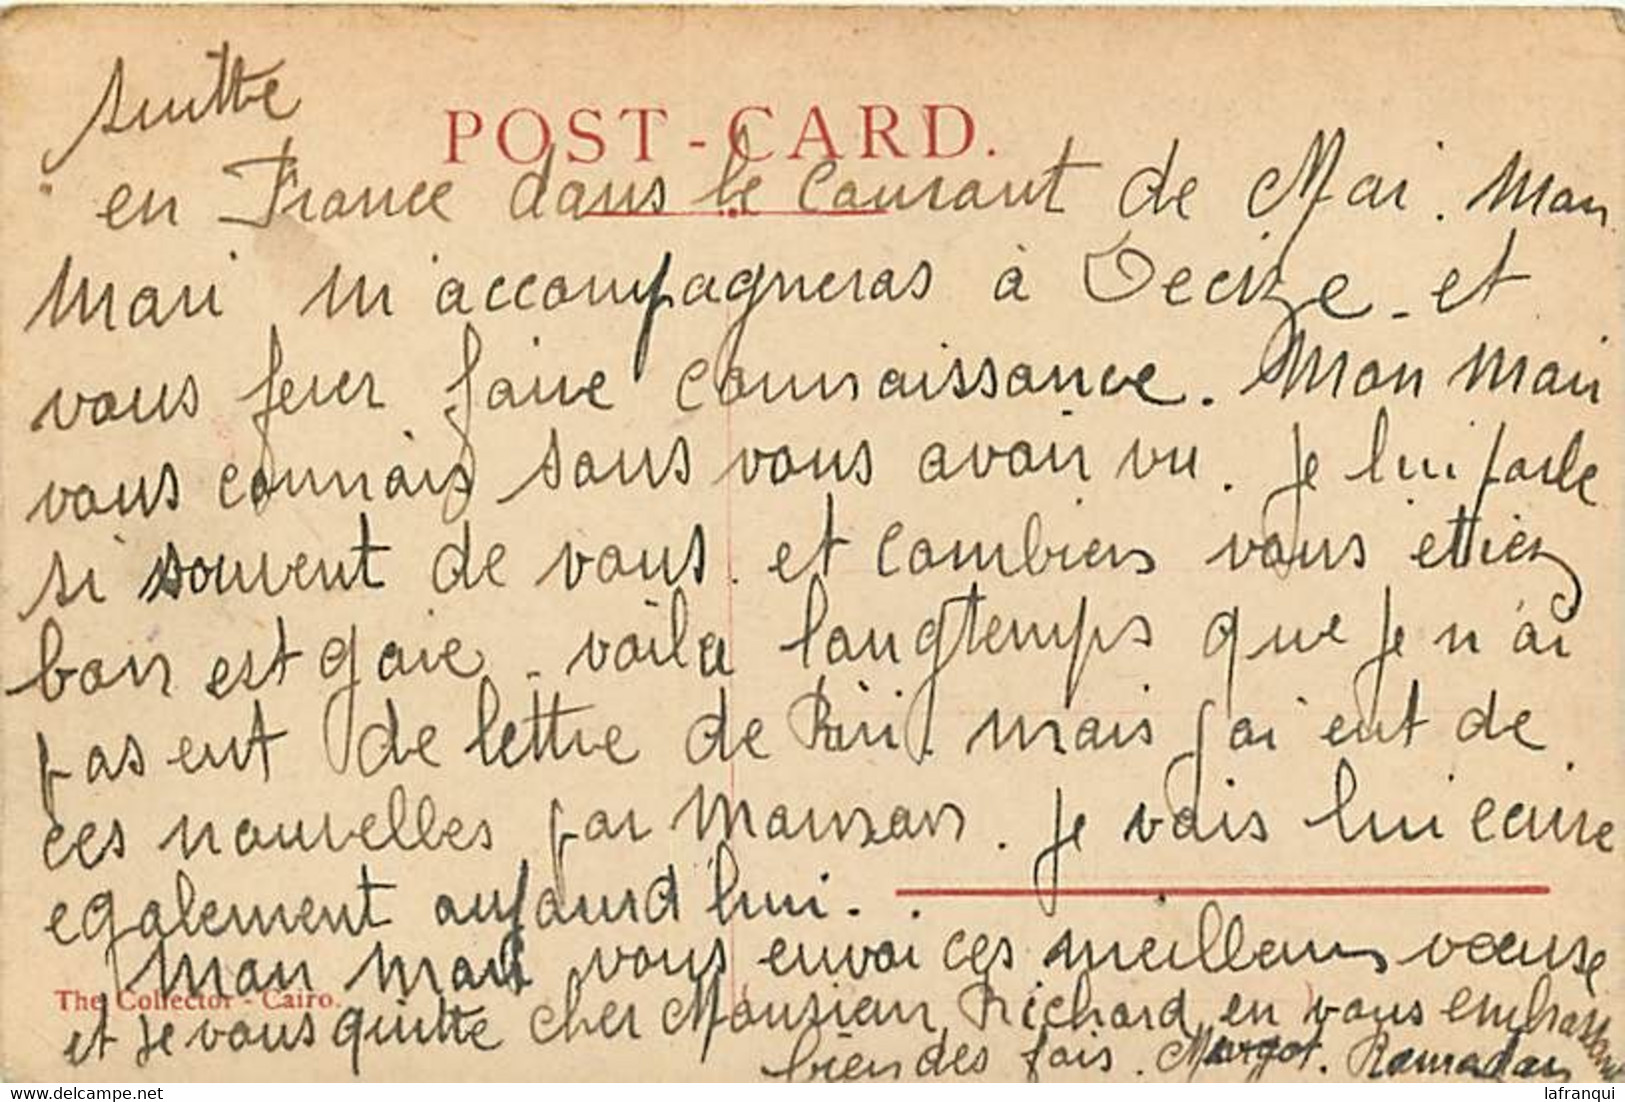 suitte
POST-CARD.
en France dans le courant de Mai. Mon
Mari m'accompagneras à Decize - et
vous ferer faire connaissance. Mon Mari
vous connais sans vous avoir vu. Je lui parle
si souvent de vous. et combien vous ettiez
bon est gaie. voila longtemps que je n'ai
pas eut de lettre de Riri. mais j'ai eut de
ces nouvelles par Manzon. Je vais lui ecrire
egalement aujourd'hui.
Mon Mari vous envoi ces meilleurs voeuse
The Collector - Cairo.
et je vous quitte cher Monsieur Richard en vous embrassant
bien des fois. Margot. Ramadan
lafranqui